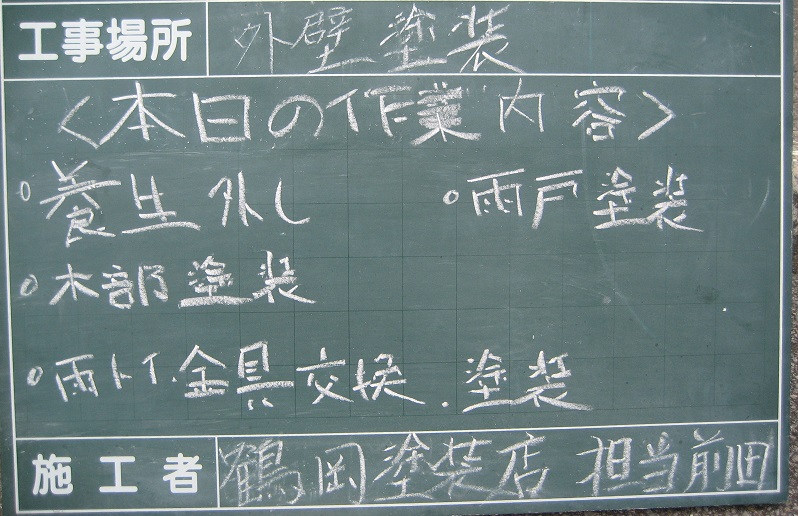 工事場所 外壁塗装
<本日の作業内容>
○養生外し ○雨戸塗装
○木部塗装
○雨トイ.金具交換.塗装
施工者 鶴岡塗装店 担当前田